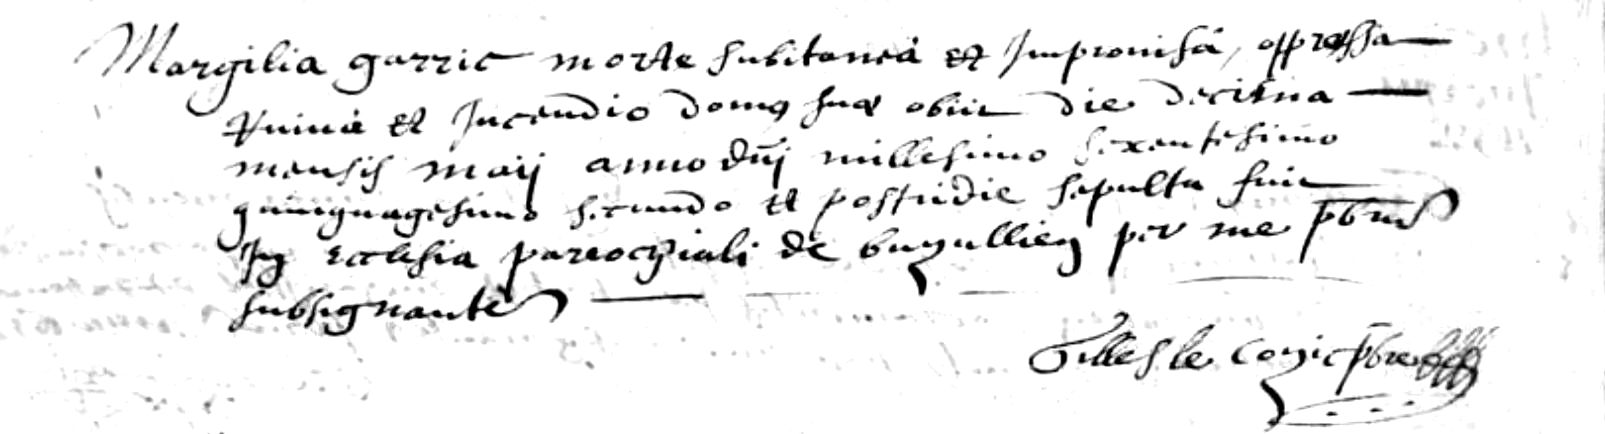 Margilia garric morte subitanêa et Improuisâ, oppressa
Ruinâ et Incendio domus suæ obiit die decima
mensis maij anno dñj millesimo sexentesimo
quinquagesimo secundo et postridie sepulta fuit
In Ecclesia parrochiali de buzullien per me pbrum
subsignante
Gilles le cozic pbre